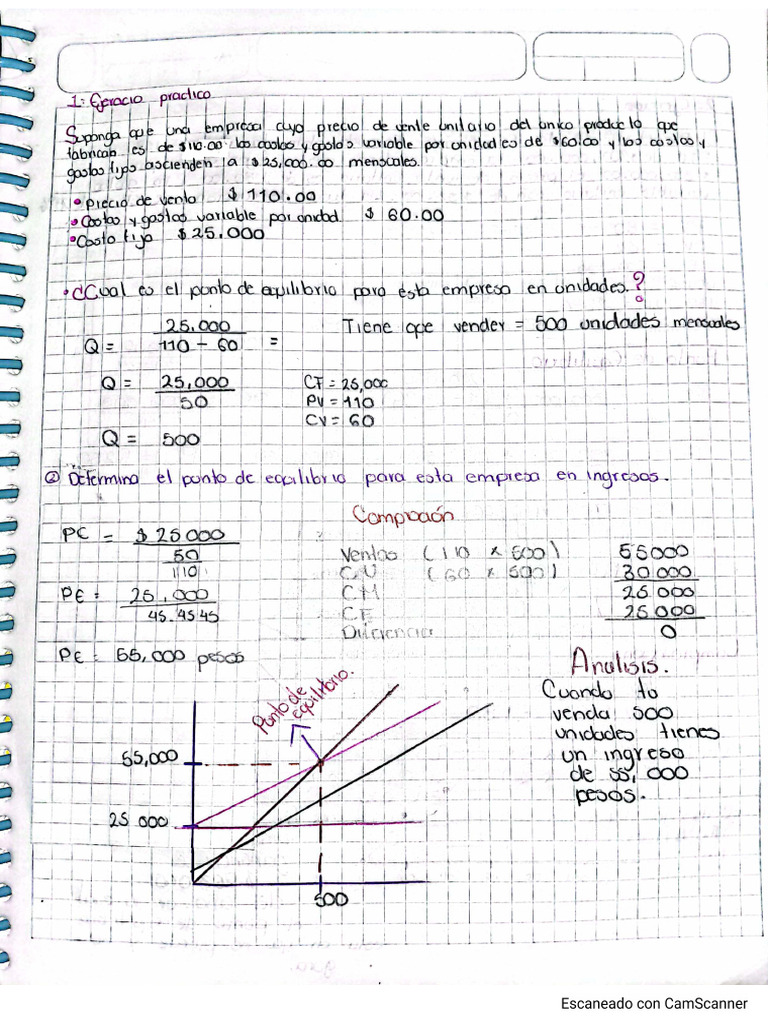 1: Ejercicio practico
Suponga que una empresa cuyo precio de venta unitario del unico producto que
fabrican es de $110.00 los costos y gastos variable por unidad es de $60.00 y los costos y
gastos fijos ascienden a $25,000.00 mensuales.
• Precio de venta $ 110.00
• Costos y gastos variable por unidad $ 60.00
• Costo fijo $ 25.000
• ¿Cual es el punto de equilibrio para esta empresa en unidades?
Q = 25.000 / 110 - 60 = Tiene que vender = 500 unidades mensuales
Q = 25,000 / 50
CF = 25,000
PV = 110
CV = 60
Q = 500
② Determina el punto de equilibrio para esta empresa en ingresos.
PE = $ 25 000 / 50 / 110
PE = 25.000 / 45.4545
PE = 55,000 pesos
Comprobación
Ventas (110 x 500) 55000
C.V (60 x 500) 30 000
C M 25 000
C F 25 000
Diferencia 0
Analisis.
Cuando to
venda 500
unidades tienes
un ingreso
de 55,000
pesos.
Punto de
equilibrio.
55,000
25 000
500
Escaneado con CamScanner